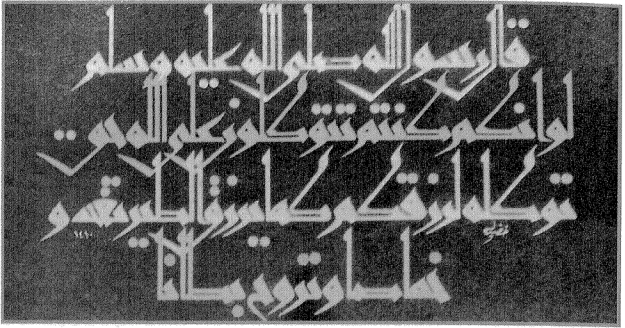 قال رسول الله صلى الله عليه وسلم
لو انكم كنتم تتوكلون على الله حق
توكله لرزقكم كما يرزق الطير تغدو
خماصا وتروح بطانا
١٤١٠